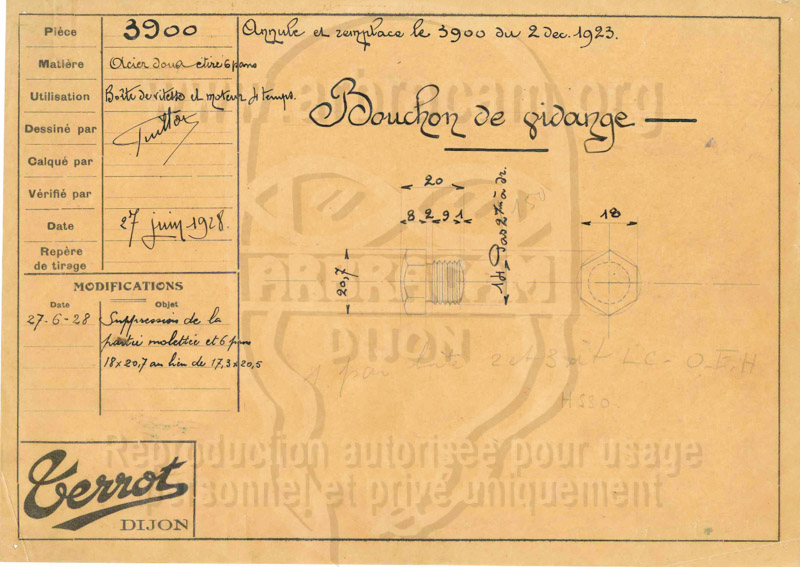 Pièce 3900
Annule et remplace le 3900 du 2 dec. 1923.
Matière Acier doux etiré 6 pans
Utilisation Boîte de vitesse et moteur 4 temps.
Dessiné par
Calqué par
Vérifié par
Date 27 juin 1928.
Repère
de tirage
Bouchon de vidange
20
8 2 9 1
20,7
14, Pas 2 à dr.
18
MODIFICATIONS
Date Objet
27-6-28 Suppression de la
partie molettée et 6 pans
18 x 20,7 au lieu de 17,3 x 20,5
HS30
Terrot
DIJON
ARBRACAM
DIJON
Reproduction autorisée pour usage
personnel et privé uniquement